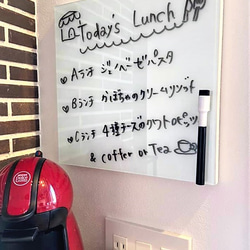 Today's Lunch
Aランチ ジェノベーゼパスタ
Bランチ かぼちゃのクリームリゾット
Cランチ 4種チーズのクワトロピッツ
& coffee or Tea